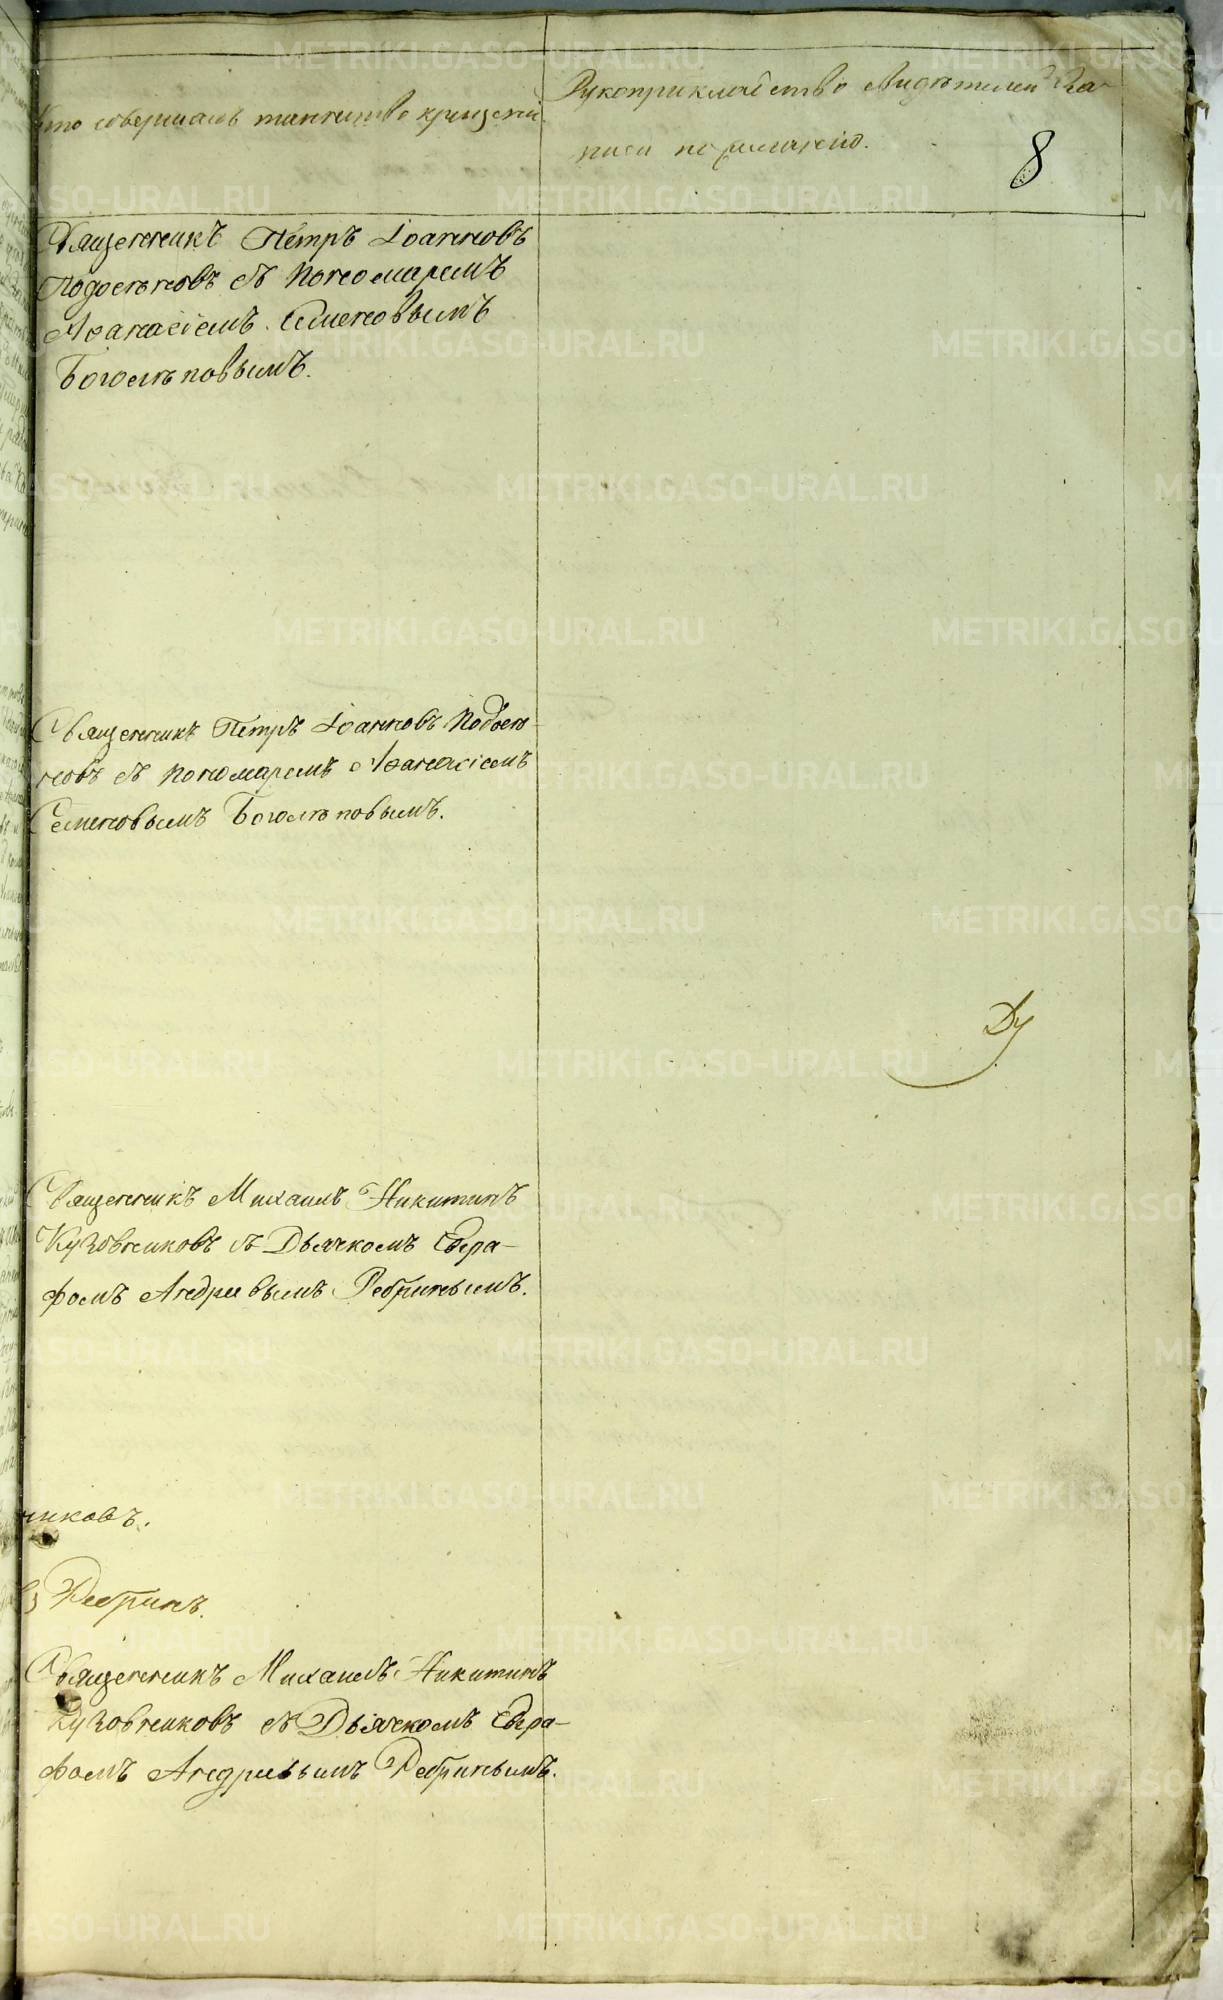 Кто совершалъ таинство крещенія.
Рукоприкладство свидѣтелей за-
писи по желанію.
8
Священникъ Петръ Іоанновъ
Подосѣновъ съ Пономаремъ
Аѳанасіемъ Семеновымъ
Боголѣповымъ.
Священникъ Петръ Іоанновъ Подосѣ-
новъ съ Пономаремъ Аѳанасіемъ
Семеновымъ Боголѣповымъ.
Ду
Священникъ Михаилъ Никитинъ
Кузовниковъ съ Дьячкомъ Евгра-
фомъ Андреевымъ Ребринымъ.
никовъ.
Ребринъ.
Священникъ Михаилъ Никитинъ
Кузовниковъ съ Дьячкомъ Евгра-
фомъ Андреевымъ Ребринымъ.
METRIKI.GASO-URAL.RU